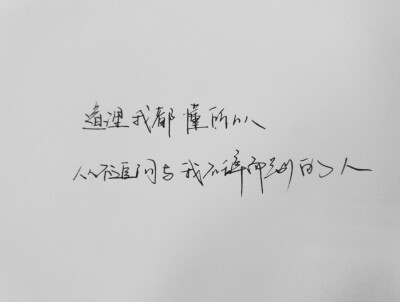 道理我都懂所以
从不追问与我不辞而别的人